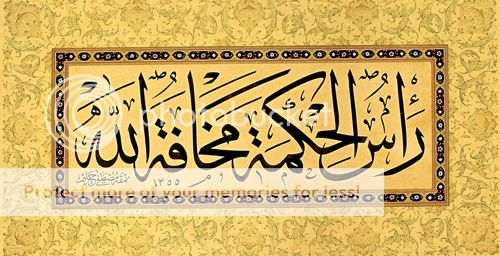 رَأْسُ الْحِكْمَةِ مَخَافَةُ اللّٰهِ
photobucket
١٣٥٥
Protect more of your memories for less!